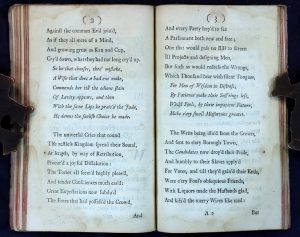 ( 2 )
Against the common Evil join'd,
As if they all were of a Mind,
And growing great in Kan and Cup,
Cry'd down, what they had not long cry'd up.
So he that chuses, tho' mistake,
A Wife that does a bad one make,
Commends her till the whole stain
Of Lust appears, and then
With the same Lips he prais'd the Jade,
He damns the foolish Choice he made.
The universal Cries that
This restless Kingdom spread their Sound,
At length, by way of Retribution,
Procur'd a joyful Dissolution:
The Tories all seem'd highly pleas'd,
And tender Consciences much eas'd:
Great Expectations now subdu'd
The Fears that had possess'd the Crowd,
And
( 3 )
And every Party hop'd to see
A Parliament both new and free;
One that would pass no Bill to screen
Ill Projects and designing Men,
But such as would redress the Wrongs,
Which Thousands bear with silent Tongues,
For Men of Wisdom in Distress,
By Patience make their Suff'rings less,
Whilst Fools, by their impatient Fumes,
Make every small Misfortune greater.
The Writs being issu'd from the Crown,
And sent to every Borough Town,
The Candidates now drop'd their Pride,
And humbly to their Slaves apply'd
For Votes, and till they'd gain'd their Ends,
Were ev'ry Fool's obsequious Friends,
With Liquors made the Husbands glad,
And kiss'd the tawny Wives like mad:
A 2
But